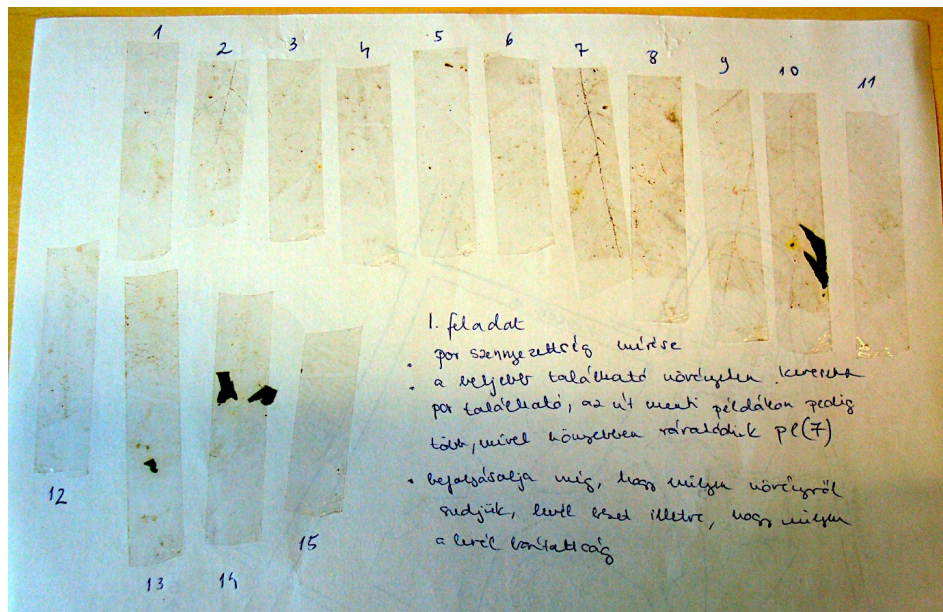 1 2 3 4 5 6 7 8 9 10 11
12 13 14 15
1. feladat
por szennyezettség mérése
• a beljebb található növényeken kevesebb
por található, az út menti példákon pedig
több, mivel könnyebben rárakódik pl(7)
• befolyásolja még, hogy milyen növényről
szedjük, levél illetve, hogy milyen
a levél